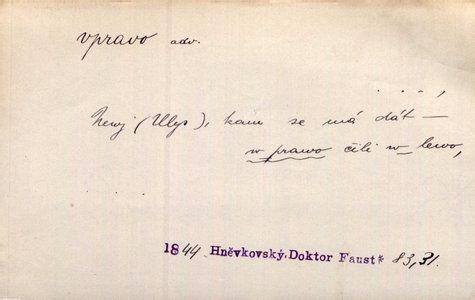 vpravo adv.
. . . . ,
Newj (Ulys), kam se má dát —
w prawo čili w lewo,
1844 Hněvkovský, Doktor Faust 83,31.